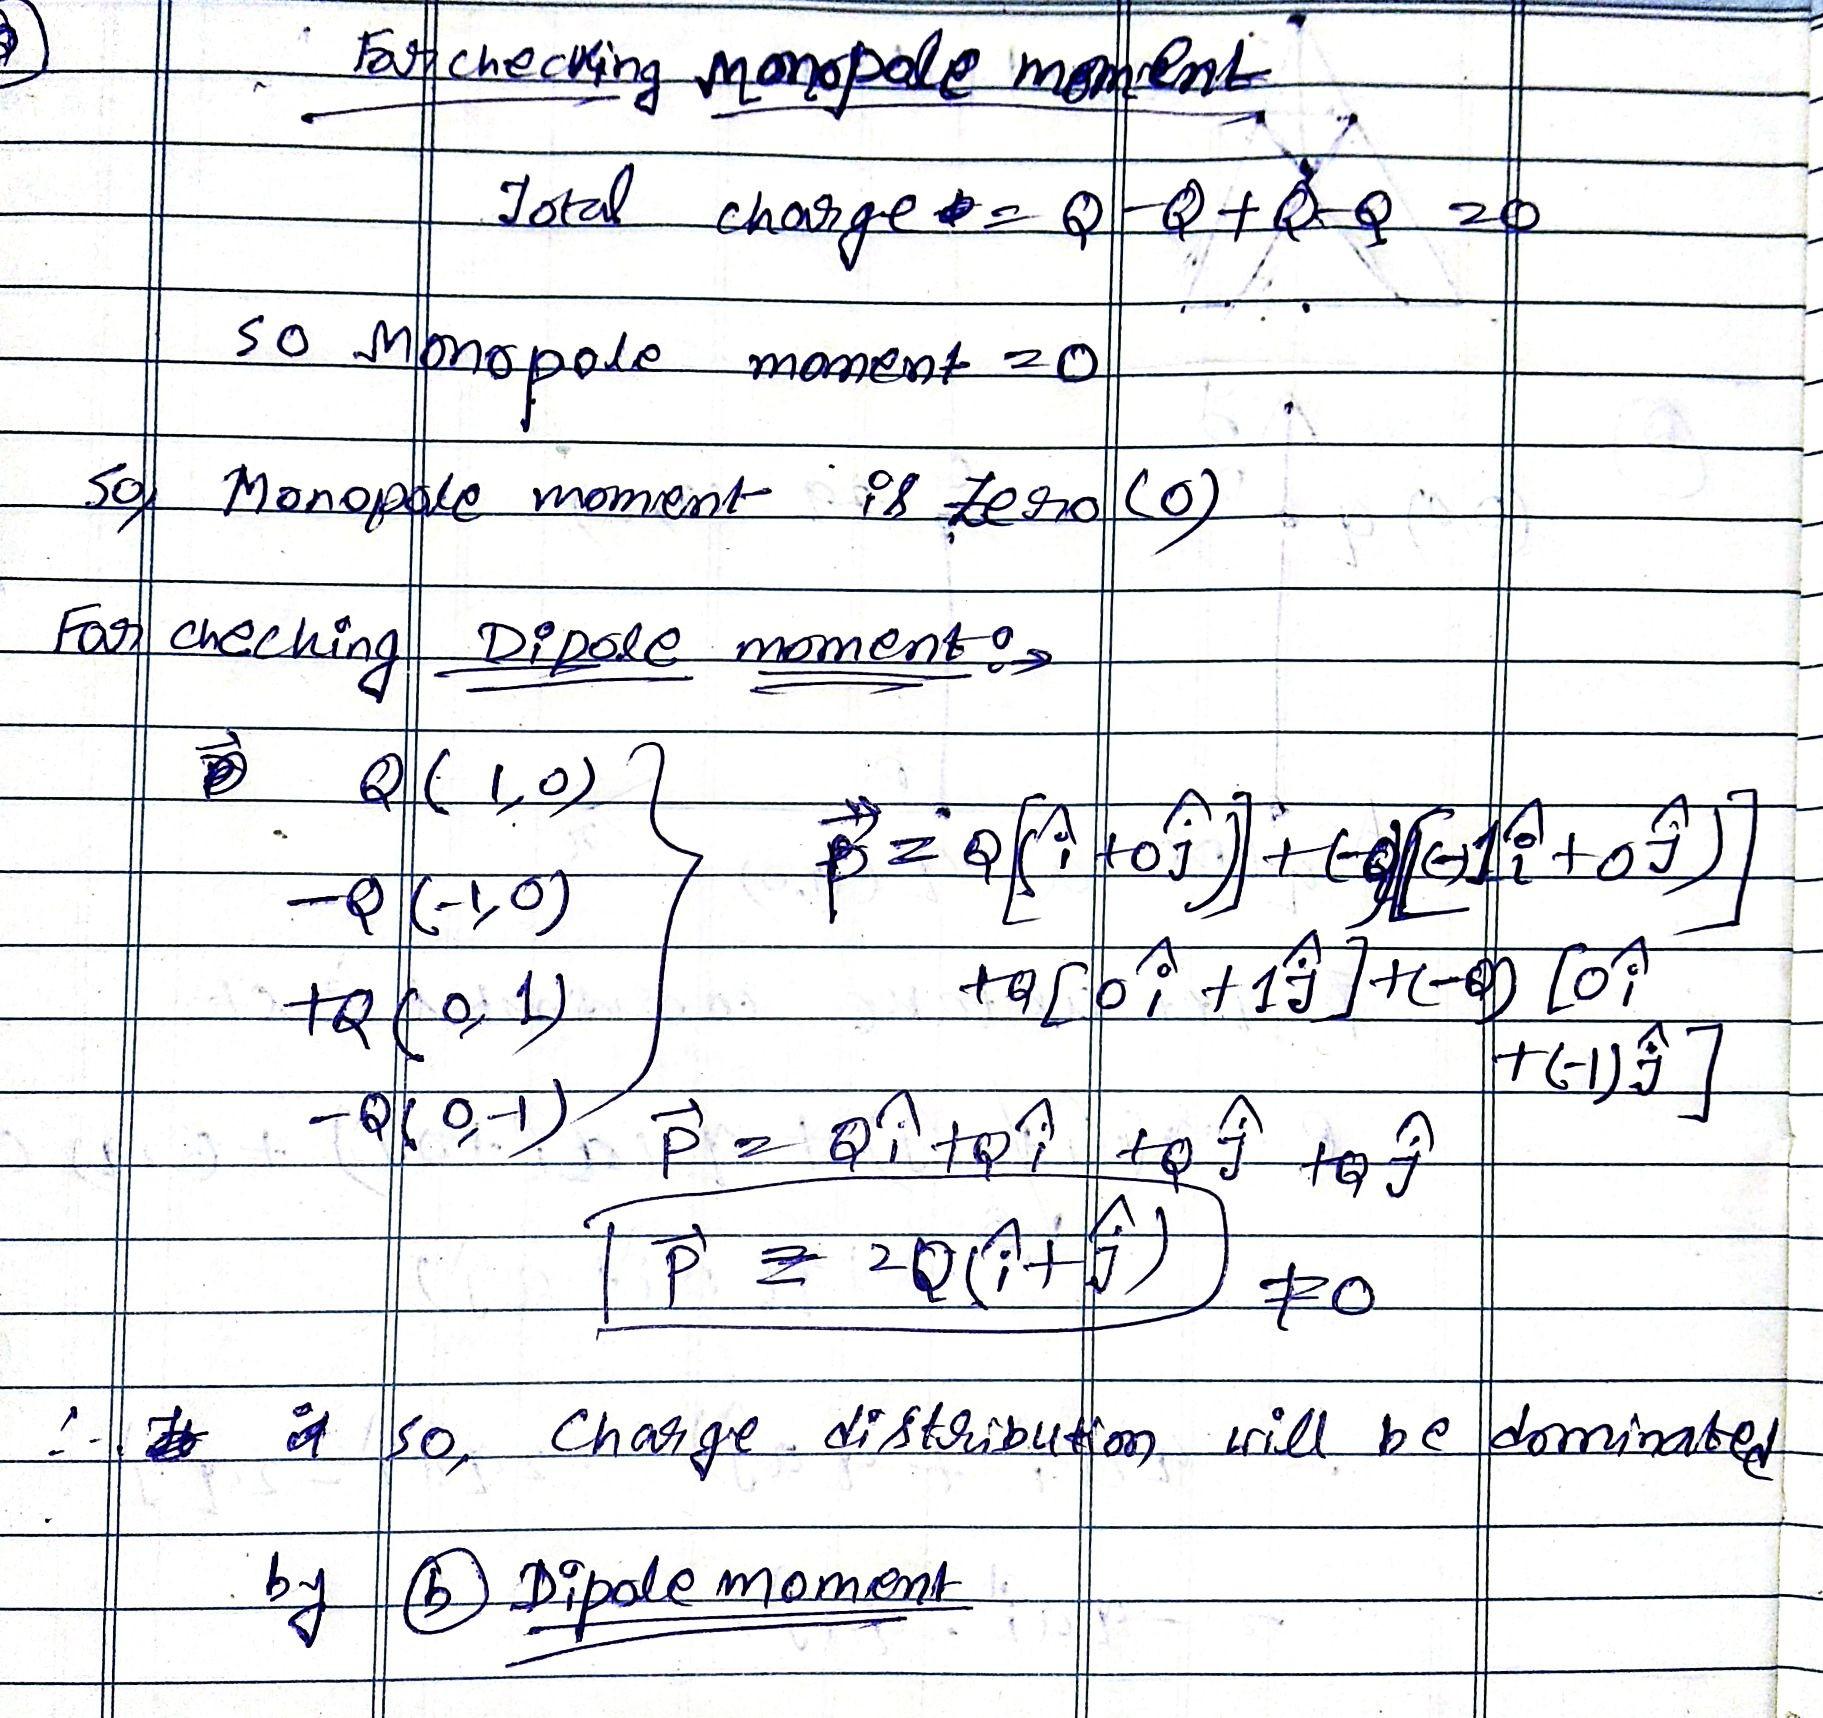 For checking Monopole moment
Total charge = Q - Q + Q - Q = 0
so Monopole moment = 0
So, Monopole moment is Zero (0)
For checking Dipole moment :→
Q (1,0)
-Q (-1,0)
+Q (0,1)
-Q (0,-1)
p⃗ = Q[(î + 0ĵ)] + (-Q)[(-1î + 0ĵ)]
+Q[0î + 1ĵ] + (-Q) [0î
+(-1)ĵ]
p⃗ = Qî + Qî + Qĵ + Qĵ
p⃗ = 2Q(î + ĵ) ≠ 0
∴ so, Charge distribution will be dominated
by (b) Dipole moment